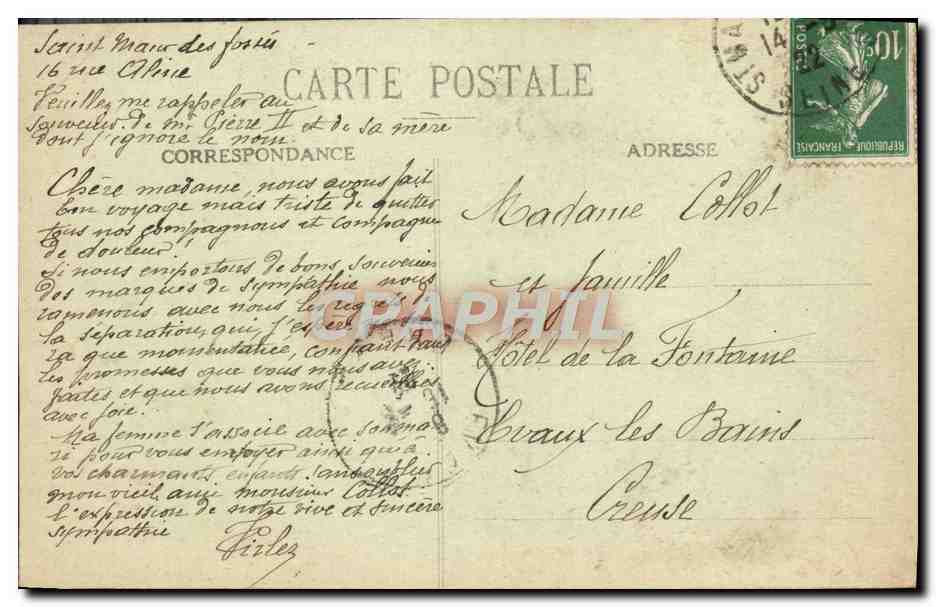 Saint Maur des fossés
16 rue Aline
CARTE POSTALE
Veuillez me rappeler au
souvenir de mr Pierre II et de sa mère
dont j'ignore le nom
CORRESPONDANCE
Chère madame, nous avons fait
bon voyage mais triste de quitter
tous nos compagnons et compagne
de douleur!
Si nous emportons de bons souvenirs
des marques de sympathie nous
ramenons avec nous les regrets de
la séparation, qui, j'espère, ne se
ra que momentanée, confiant dans
les promesses que vous nous avez
faites et que nous avons recueillies
avec joie.
Ma femme s'associe avec son ma
ri pour vous envoyer ainsi qu'à
vos charmants enfants sans oublier
mon vieil ami monsieur Collot
l'expression de notre vive et sincère
sympathie
Firlez
ADRESSE
Madame Collot
et famille
Hôtel de la Fontaine
Evaux les Bains
Creuse
10c
POSTES
REPUBLIQUE FRANÇAISE
ST MA
14
22
SEINE
CPAPHIL